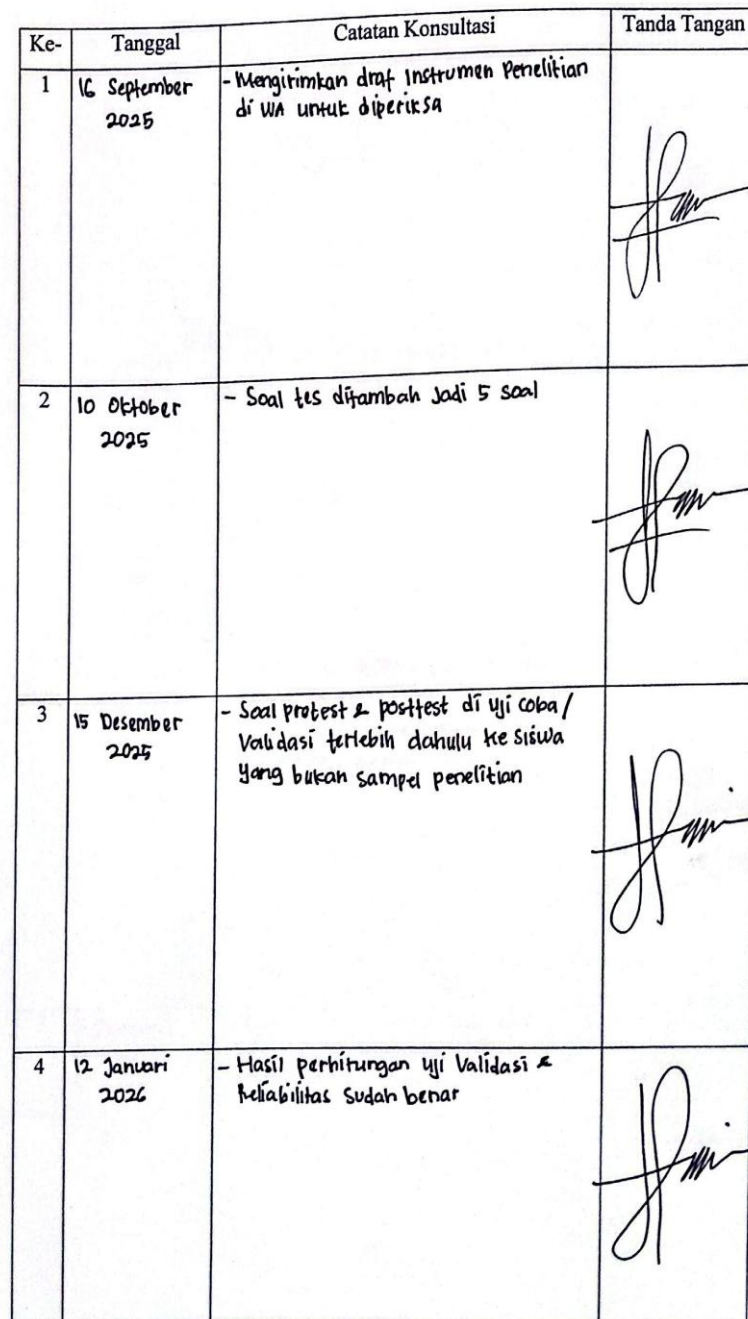 Ke- Tanggal Catatan Konsultasi Tanda Tangan
1 16 September - Mengirimkan draf Instrumen Penelitian
2025 di WA untuk diperiksa
2 10 Oktober - Soal tes ditambah Jadi 5 soal
2025
3 15 Desember - Soal protest & posttest di uji coba /
2025 Validasi terlebih dahulu ke siswa
yang bukan sampel penelitian
4 12 Januari - Hasil perhitungan uji Validasi &
2026 Reliabilitas sudah benar